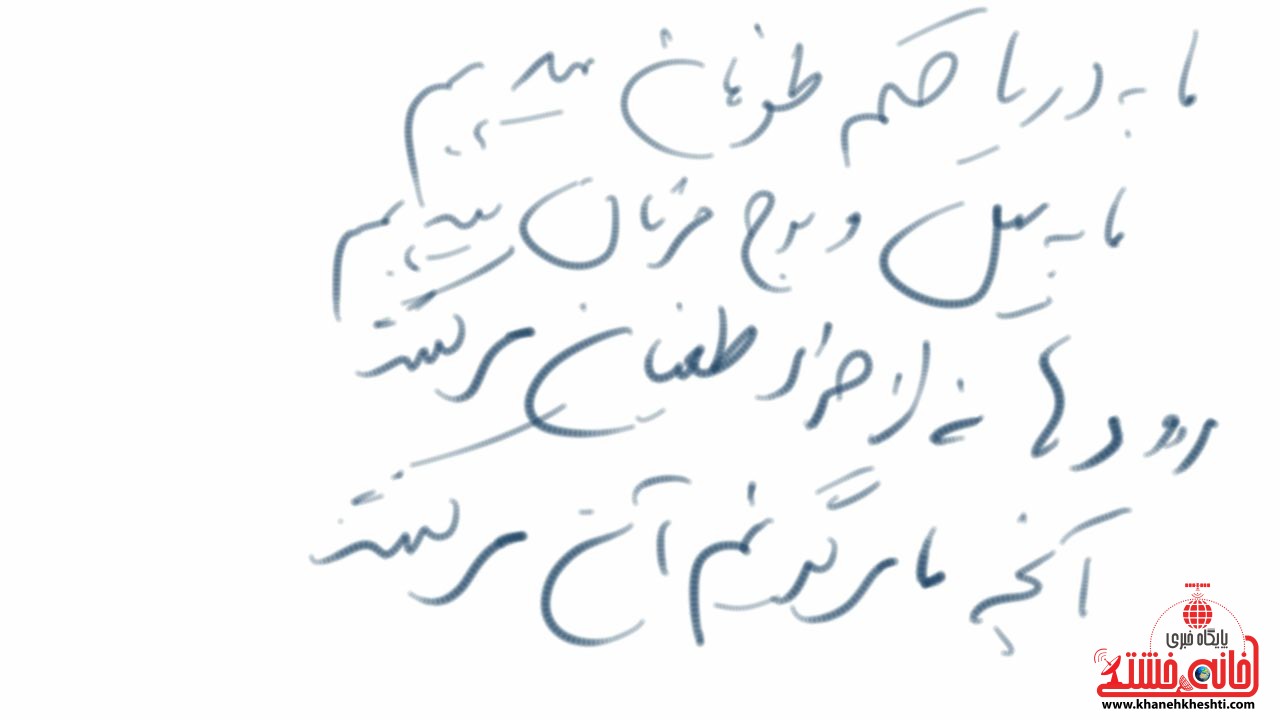 ما به دریا حکم طوفان میدهیم
ما به سیل و موج فرمان میدهیم
رودها از خود نه طغیان میکنند
آنچه ما گوییم آن میکنند
پایگاه خبری
خانه خشتی
www.khanehkheshti.com